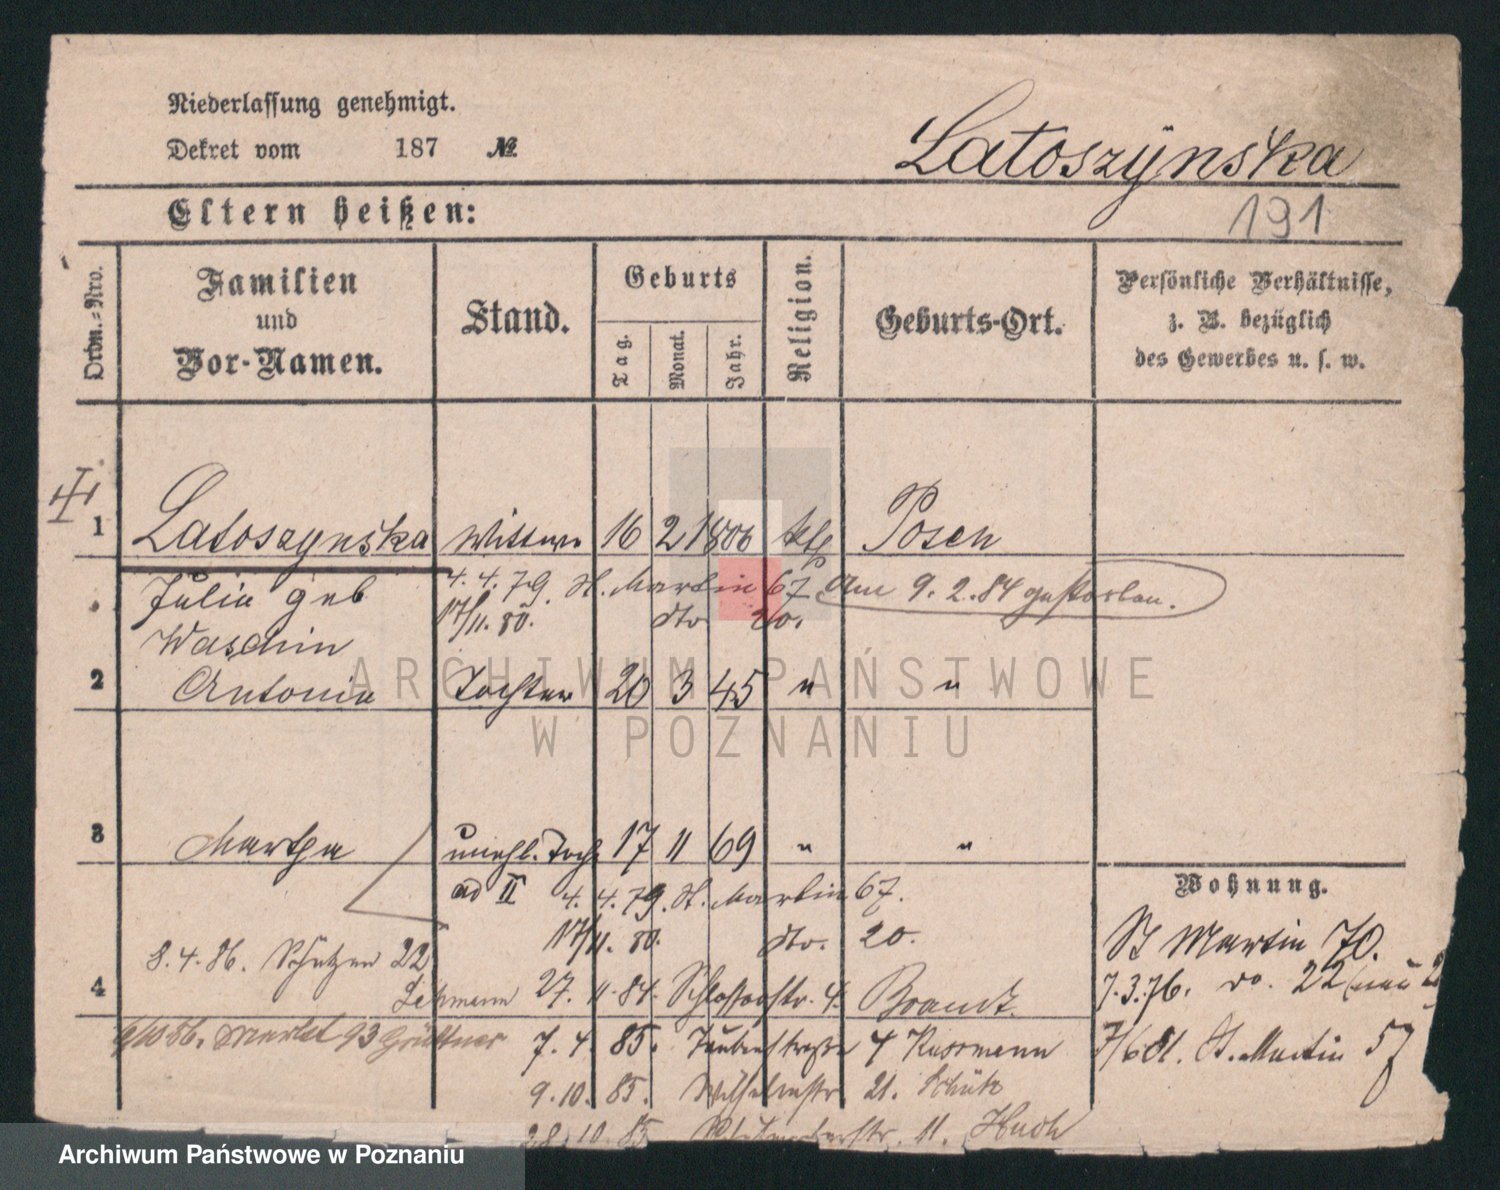 Niederlassung genehmigt.
Dekret vom 187 №
Latoszÿnska
191
Eltern heißen:
Ordn.-Nro.
Familien und Vor-Namen.
Stand.
Geburts
Tag.
Monat.
Jahr.
Religion.
Geburts-Ort.
Persönliche Verhältnisse, z. B. bezüglich des Gewerbes u. s. w.
1 Latoszynska Wittwe 16 2 1806 kth Posen
Julia geb 4. 4. 79. St. Martin 67. Am 9. 2. 84 gestorben.
17/11. 80. dto 20.
Waschin
2 Antonie Tochter 20 3 45 " "
ARCHIWUM PAŃSTWOWE
W POZNANIU
3 Martha unehl. Tocht 17 11 69 " "
ad II 4. 4. 79. St. Martin 67.
17/11. 80. dto. 20.
Wohnung.
St Martin 70.
8. 4. 86. Schützen 22
Lehmann
4 27. 11. 84. Schlosserstr. 4. Brandt.
7. 3. 76. do. 22 (neu 2
6/10 86. Markt 93 Grüttner
7. 4. 85. Taubenstraße 4 Kussmann
7/6 81. St. Martin 57
9. 10. 85. Wilhelmstr 21. Schütz
28. 10. 85 11. Huch
Archiwum Państwowe w Poznaniu